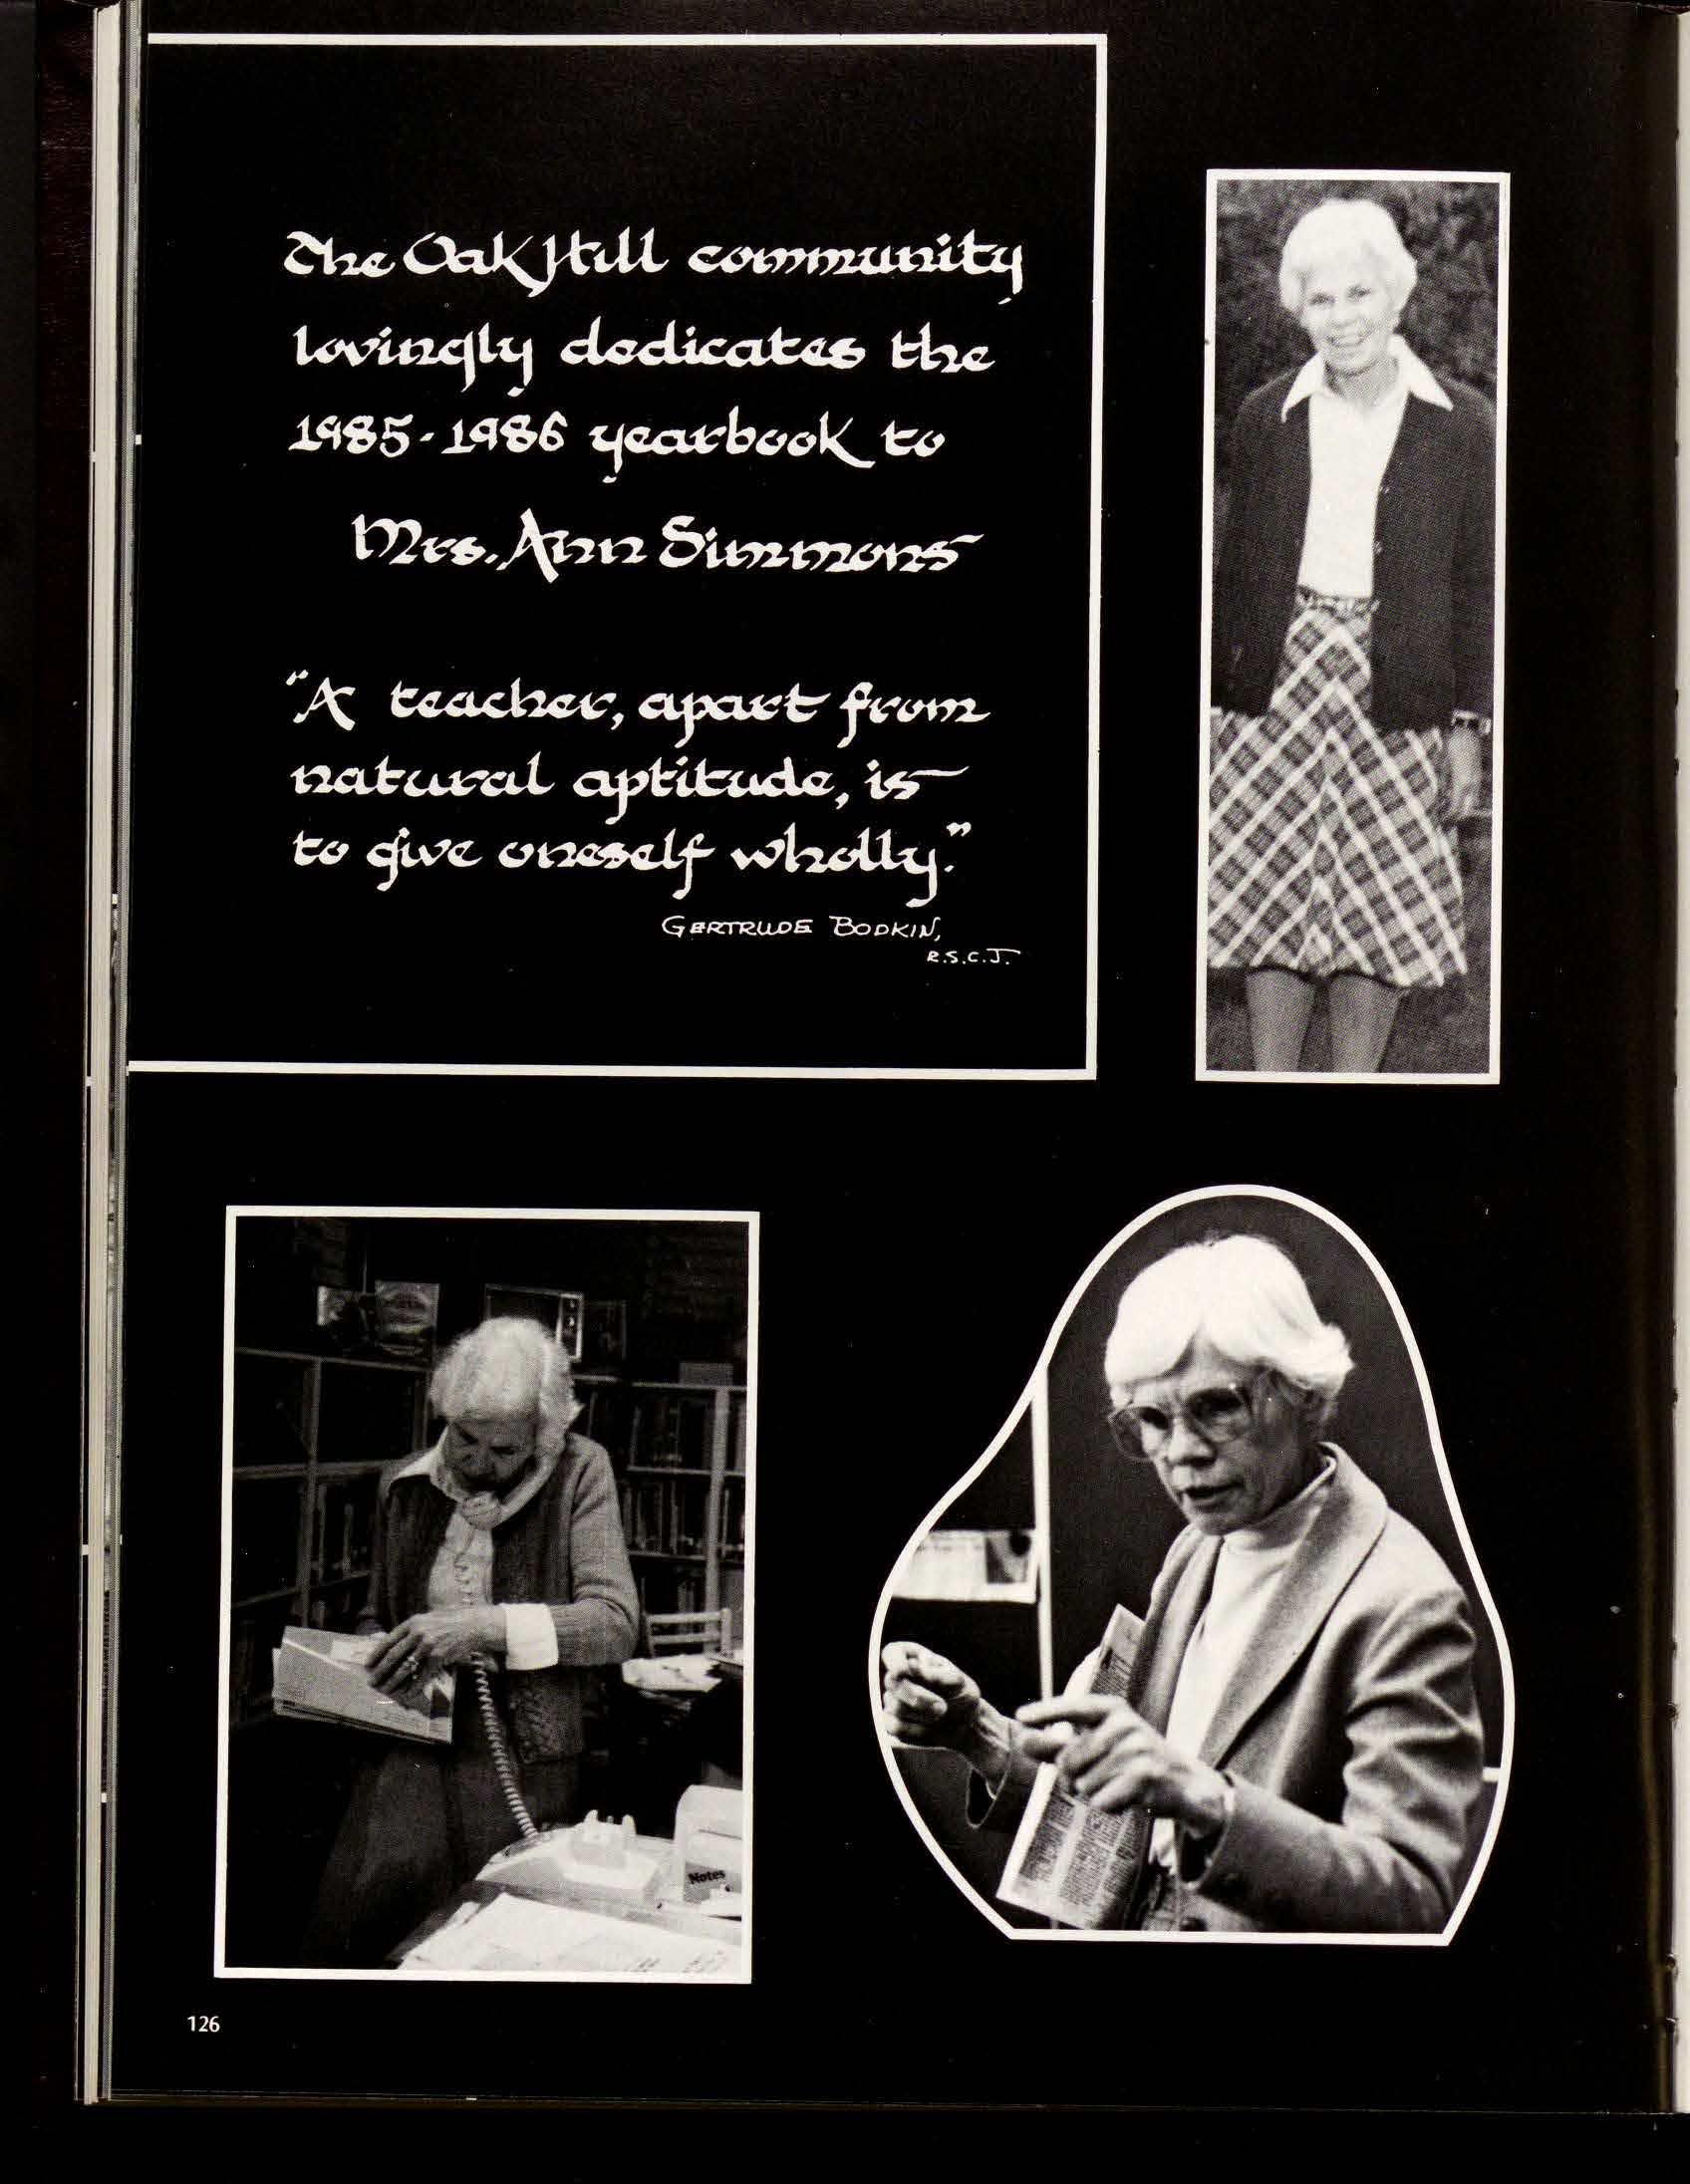 The Oak Hill community
lovingly dedicates the
1985-1986 yearbook to
Mrs. Ann Simmons
"A teacher, apart from
natural aptitude, is
to give oneself wholly."
GERTRUDE BODKIN,
R.S.C.J.
Notes
126